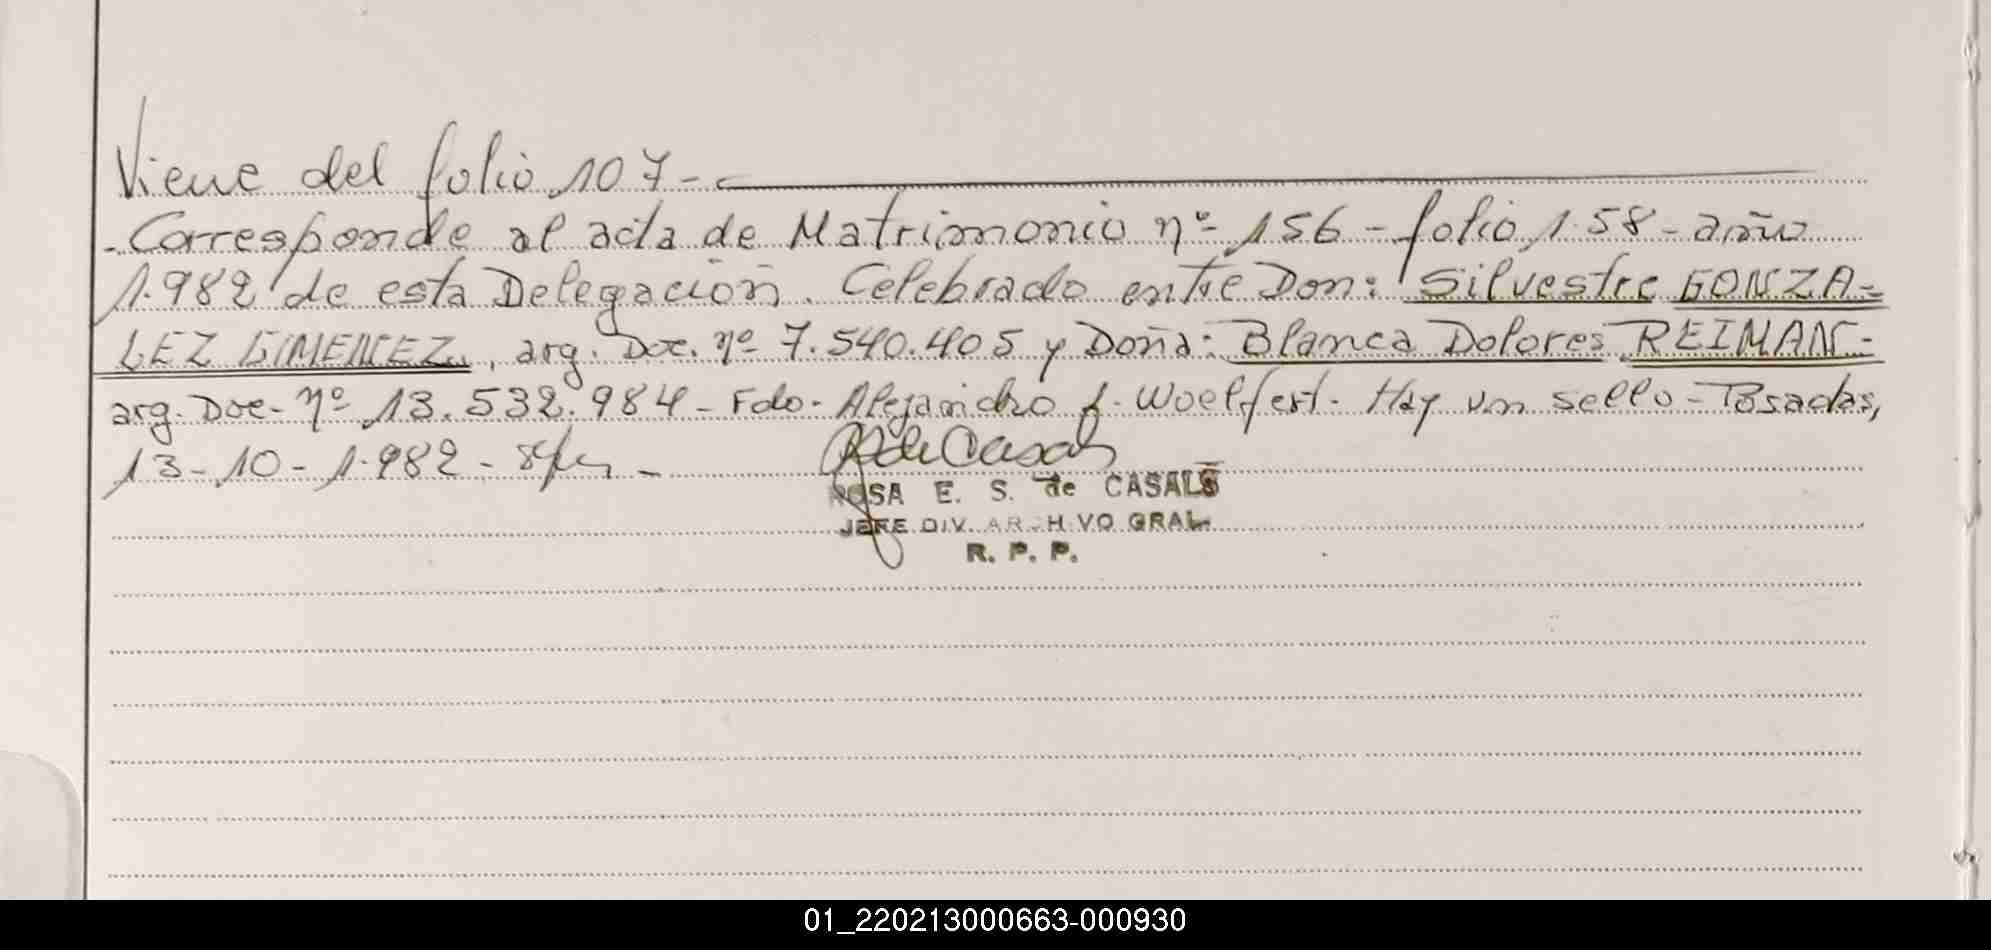 Viene del folio 107-
-Corresponde al acta de Matrimonio nº 156 - folio 158 - año
1.982 de esta Delegación. Celebrado entre Don: Silvestre GONZA-
LEZ GIMENEZ, arg. Doc. nº 7.540.405 y Doña: Blanca Dolores REIMAN-
arg. Doc- nº 13.532.984- Fdo- Alejandro J. Woelfert- Hay un sello - Posadas,
13-10-1.982-
R de Casals
ROSA E. S. de CASALS
JEFE DIV. ARCHIVO GRAL
R. P. P.
01_220213000663-000930